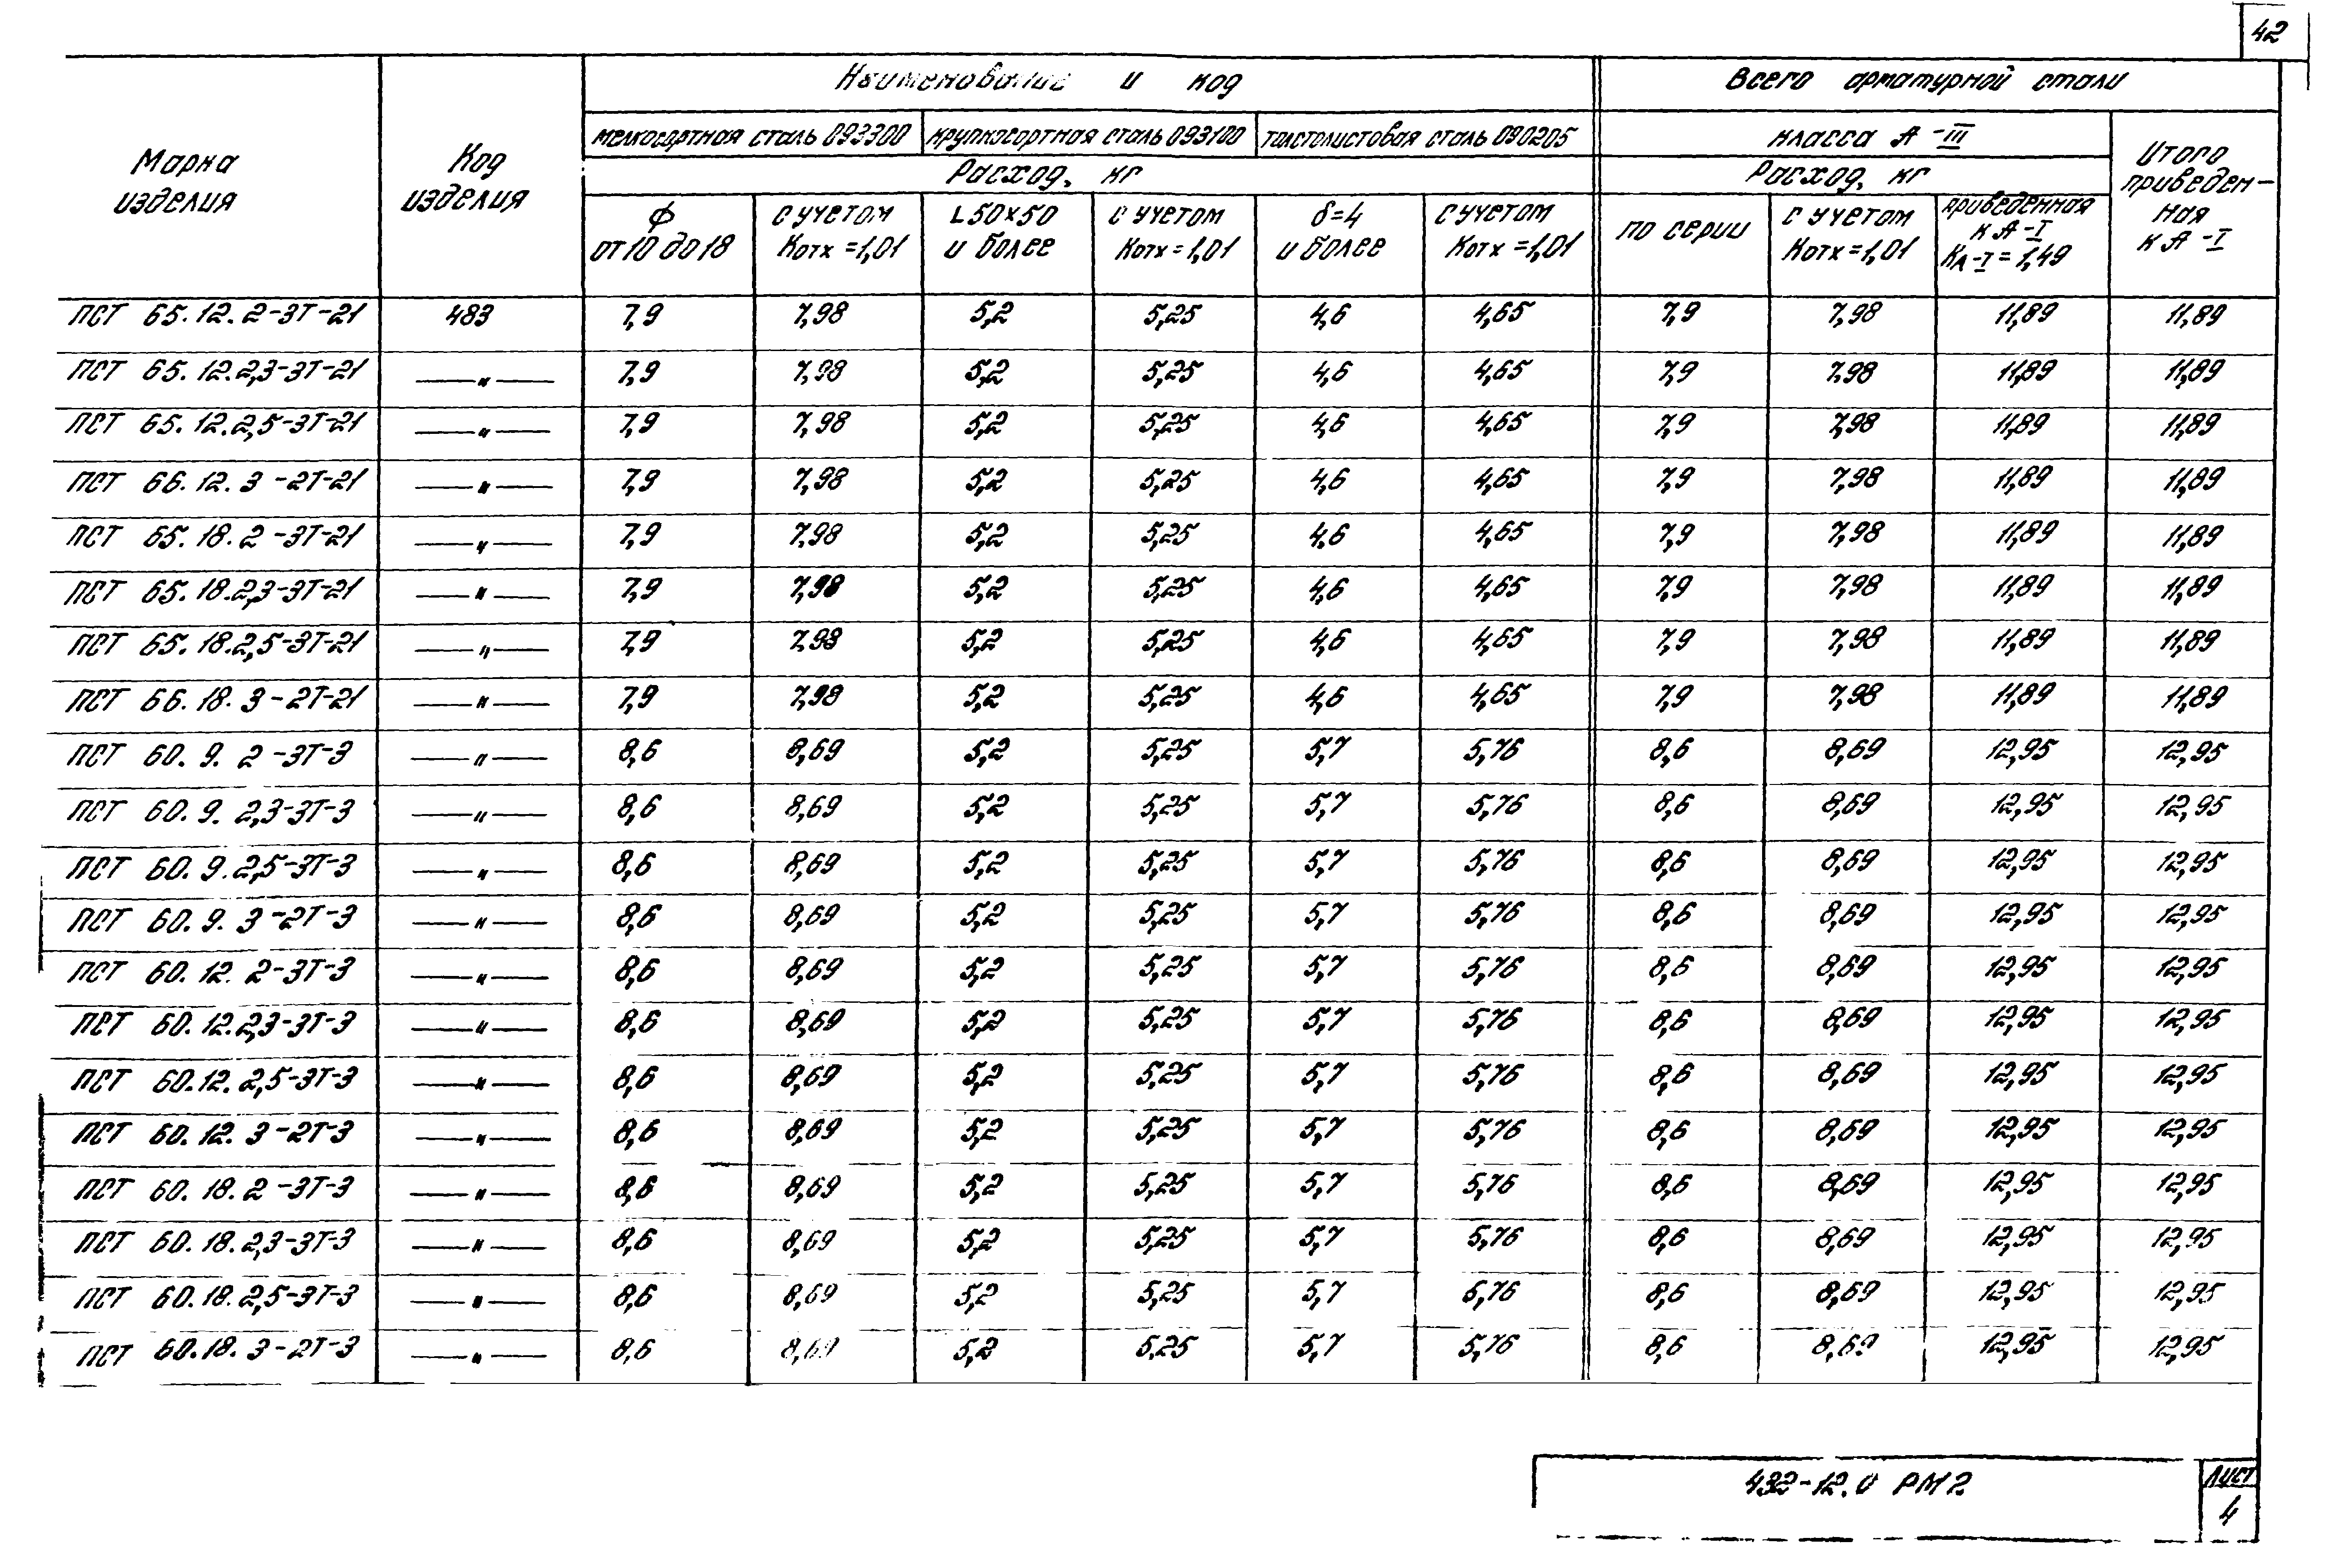 42
Наименование и код Всего арматурной стали
мелкосортная сталь 093300 крупносортная сталь 093100 толстолистовая сталь 090205 класса А-III
Марка изделия Код изделия Расход, кг Расход, кг Итого приведен-ная к А-I
ф от 10 до 18 с учетом Котх=1,01 L50×50 и более с учетом Котх=1,01 δ=4 и более с учетом Котх=1,01 по серии с учетом Котх=1,01 приведенная к А-I КА-I=1,49
ПСТ 65.12.2-3Т-21 483 7,9 7,98 5,2 5,25 4,6 4,65 7,9 7,98 11,89 11,89
ПСТ 65.12.2,3-3Т-21 —"— 7,9 7,98 5,2 5,25 4,6 4,65 7,9 7,98 11,89 11,89
ПСТ 65.12.2,5-3Т-21 —"— 7,9 7,98 5,2 5,25 4,6 4,65 7,9 7,98 11,89 11,89
ПСТ 66.12.3-2Т-21 —"— 7,9 7,98 5,2 5,25 4,6 4,65 7,9 7,98 11,89 11,89
ПСТ 65.18.2-3Т-21 —"— 7,9 7,98 5,2 5,25 4,6 4,65 7,9 7,98 11,89 11,89
ПСТ 65.18.2,3-3Т-21 —"— 7,9 7,98 5,2 5,25 4,6 4,65 7,9 7,98 11,89 11,89
ПСТ 65.18.2,5-3Т-21 —"— 7,9 7,98 5,2 5,25 4,6 4,65 7,9 7,98 11,89 11,89
ПСТ 66.18.3-2Т-21 —"— 7,9 7,98 5,2 5,25 4,6 4,65 7,9 7,98 11,89 11,89
ПСТ 60.9.2-3Т-3 —"— 8,6 8,69 5,2 5,25 5,7 5,76 8,6 8,69 12,95 12,95
ПСТ 60.9.2,3-3Т-3 —"— 8,6 8,69 5,2 5,25 5,7 5,76 8,6 8,69 12,95 12,95
ПСТ 60.9.2,5-3Т-3 —"— 8,6 8,69 5,2 5,25 5,7 5,76 8,6 8,69 12,95 12,95
ПСТ 60.9.3-2Т-3 —"— 8,6 8,69 5,2 5,25 5,7 5,76 8,6 8,69 12,95 12,95
ПСТ 60.12.2-3Т-3 —"— 8,6 8,69 5,2 5,25 5,7 5,76 8,6 8,69 12,95 12,95
ПСТ 60.12.2,3-3Т-3 —"— 8,6 8,69 5,2 5,25 5,7 5,76 8,6 8,69 12,95 12,95
ПСТ 60.12.2,5-3Т-3 —"— 8,6 8,69 5,2 5,25 5,7 5,76 8,6 8,69 12,95 12,95
ПСТ 60.12.3-2Т-3 —"— 8,6 8,69 5,2 5,25 5,7 5,76 8,6 8,69 12,95 12,95
ПСТ 60.18.2-3Т-3 —"— 8,6 8,69 5,2 5,25 5,7 5,76 8,6 8,69 12,95 12,95
ПСТ 60.18.2,3-3Т-3 —"— 8,6 8,69 5,2 5,25 5,7 5,76 8,6 8,69 12,95 12,95
ПСТ 60.18.2,5-3Т-3 —"— 8,6 8,69 5,2 5,25 5,7 5,76 8,6 8,69 12,95 12,95
ПСТ 60.18.3-2Т-3 —"— 8,6 8,69 5,2 5,25 5,7 5,76 8,6 8,69 12,95 12,95
432-12.0 РМ2 Лист
4